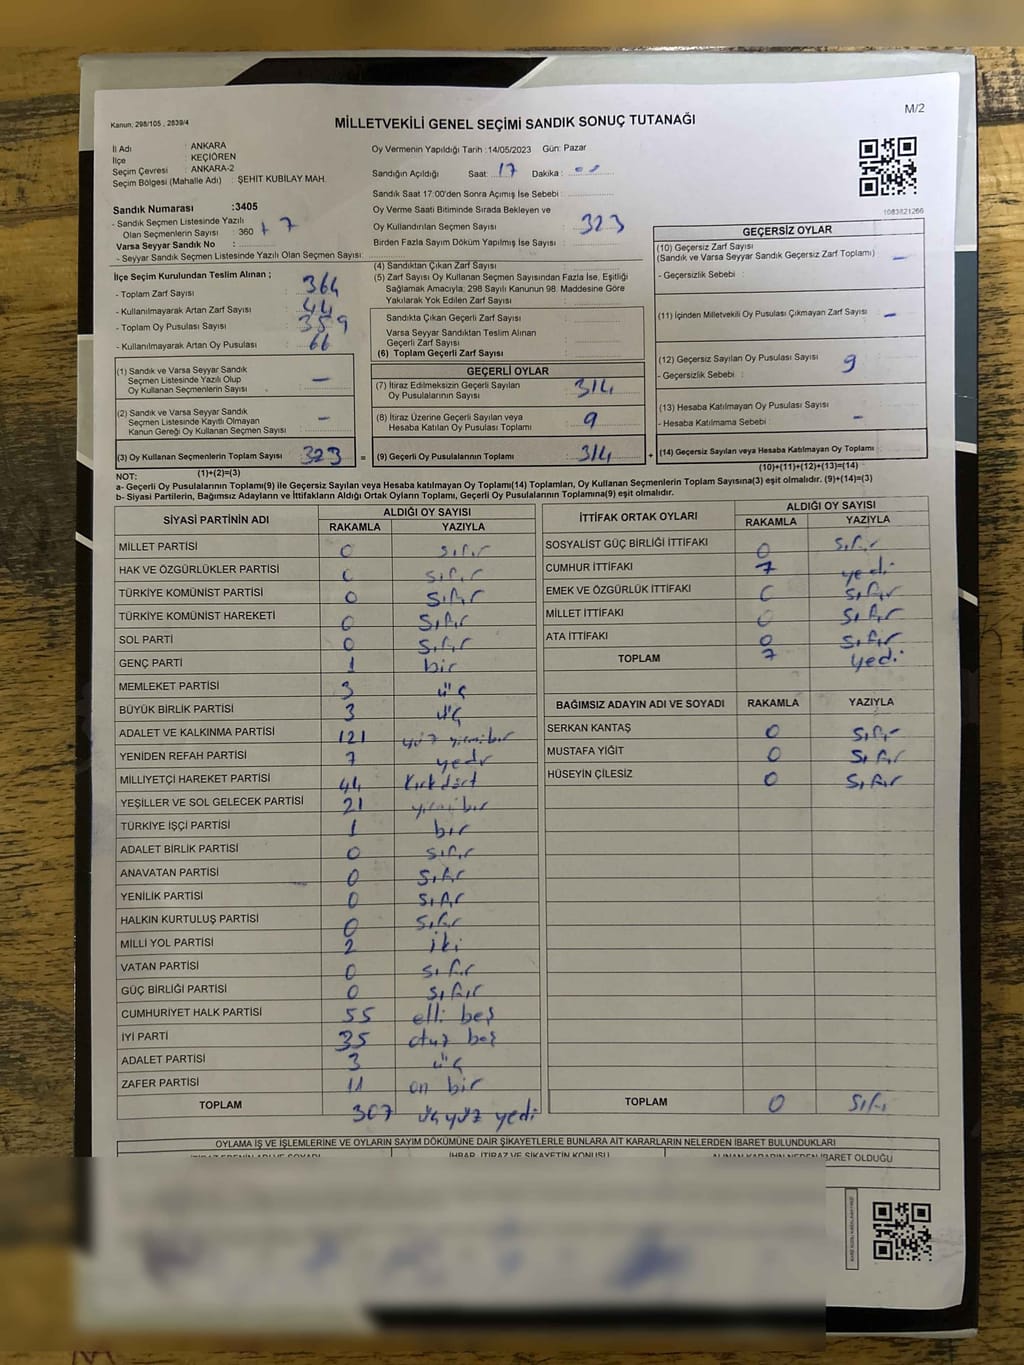 Kanun, 298/105 , 2839/4
M/2
MİLLETVEKİLİ GENEL SEÇİMİ SANDIK SONUÇ TUTANAĞI
İl Adı : ANKARA
İlçe : KEÇİÖREN
Seçim Çevresi : ANKARA-2
Seçim Bölgesi (Mahalle Adı) : ŞEHİT KUBİLAY MAH.
Sandık Numarası :3405
- Sandık Seçmen Listesinde Yazılı
Olan Seçmenlerin Sayısı : 360 + 7
Varsa Seyyar Sandık No :
- Seyyar Sandık Seçmen Listesinde Yazılı Olan Seçmen Sayısı:
Oy Vermenin Yapıldığı Tarih :14/05/2023 Gün: Pazar
Sandığın Açıldığı Saat: 17 Dakika :
Sandık Saat 17:00'den Sonra Açımış İse Sebebi :
Oy Verme Saati Bitiminde Sırada Bekleyen ve
Oy Kullandırılan Seçmen Sayısı : 323
Birden Fazla Sayım Döküm Yapılmış İse Sayısı :
1083821266
İlçe Seçim Kurulundan Teslim Alınan ;
- Toplam Zarf Sayısı : 364
- Kullanılmayarak Artan Zarf Sayısı : 44
- Toplam Oy Pusulası Sayısı : 389
- Kullanılmayarak Artan Oy Pusulası : 66
(1) Sandık ve Varsa Seyyar Sandık
Seçmen Listesinde Yazılı Olup
Oy Kullanan Seçmenlerin Sayısı : –
(2) Sandık ve Varsa Seyyar Sandık
Seçmen Listesinde Kayıtlı Olmayan
Kanun Gereği Oy Kullanan Seçmen Sayısı : –
(3) Oy Kullanan Seçmenlerin Toplam Sayısı : 323 =
(4) Sandıktan Çıkan Zarf Sayısı :
(5) Zarf Sayısı Oy Kullanan Seçmen Sayısından Fazla İse, Eşitliği
Sağlamak Amacıyla; 298 Sayılı Kanunun 98. Maddesine Göre
Yakılarak Yok Edilen Zarf Sayısı :
Sandıkta Çıkan Geçerli Zarf Sayısı :
Varsa Seyyar Sandıktan Teslim Alınan
Geçerli Zarf Sayısı :
(6) Toplam Geçerli Zarf Sayısı :
GEÇERLİ OYLAR
(7) İtiraz Edilmeksizin Geçerli Sayılan
Oy Pusulalarının Sayısı : 314
(8) İtiraz Üzerine Geçerli Sayılan veya
Hesaba Katılan Oy Pusulası Toplamı : 9
(9) Geçerli Oy Pusulalarının Toplamı : 314 +
GEÇERSİZ OYLAR
(10) Geçersiz Zarf Sayısı
(Sandık ve Varsa Seyyar Sandık Geçersiz Zarf Toplamı) : –
- Geçersizlik Sebebi :
(11) İçinden Milletvekili Oy Pusulası Çıkmayan Zarf Sayısı : –
(12) Geçersiz Sayılan Oy Pusulası Sayısı : 9
- Geçersizlik Sebebi :
(13) Hesaba Katılmayan Oy Pusulası Sayısı :
- Hesaba Katılmama Sebebi : –
(14) Geçersiz Sayılan veya Hesaba Katılmayan Oy Toplamı :
(1)+(2)=(3)
(10)+(11)+(12)+(13)=(14)
NOT:
a- Geçerli Oy Pusulalarının Toplamı(9) ile Geçersiz Sayılan veya Hesaba Katılmayan Oy Toplamı(14) Toplamları, Oy Kullanan Seçmenlerin Toplam Sayısına(3) eşit olmalıdır. (9)+(14)=(3)
b- Siyasi Partilerin, Bağımsız Adayların ve İttifakların Aldığı Ortak Oyların Toplamı, Geçerli Oy Pusulalarının Toplamına(9) eşit olmalıdır.
SİYASİ PARTİNİN ADI ALDIĞI OY SAYISI
RAKAMLA YAZIYLA
MİLLET PARTİSİ 0 sıfır
HAK VE ÖZGÜRLÜKLER PARTİSİ 0 sıfır
TÜRKİYE KOMÜNİST PARTİSİ 0 sıfır
TÜRKİYE KOMÜNİST HAREKETİ 0 sıfır
SOL PARTİ 0 sıfır
GENÇ PARTİ 1 bir
MEMLEKET PARTİSİ 3 üç
BÜYÜK BİRLİK PARTİSİ 3 üç
ADALET VE KALKINMA PARTİSİ 121 yüz yirmibir
YENİDEN REFAH PARTİSİ 7 yedi
MİLLİYETÇİ HAREKET PARTİSİ 44 kırkdört
YEŞİLLER VE SOL GELECEK PARTİSİ 21 yirmibir
TÜRKİYE İŞÇİ PARTİSİ 1 bir
ADALET BİRLİK PARTİSİ 0 sıfır
ANAVATAN PARTİSİ 0 sıfır
YENİLİK PARTİSİ 0 sıfır
HALKIN KURTULUŞ PARTİSİ 0 sıfır
MİLLİ YOL PARTİSİ 2 iki
VATAN PARTİSİ 0 sıfır
GÜÇ BİRLİĞİ PARTİSİ 0 sıfır
CUMHURİYET HALK PARTİSİ 55 elli beş
İYİ PARTİ 35 otuz beş
ADALET PARTİSİ 3 üç
ZAFER PARTİSİ 11 on bir
TOPLAM 307 üçyüz yedi
İTTİFAK ORTAK OYLARI ALDIĞI OY SAYISI
RAKAMLA YAZIYLA
SOSYALİST GÜÇ BİRLİĞİ İTTİFAKI 0 sıfır
CUMHUR İTTİFAKI 7 yedi
EMEK VE ÖZGÜRLÜK İTTİFAKI 0 sıfır
MİLLET İTTİFAKI 0 sıfır
ATA İTTİFAKI 0 sıfır
TOPLAM 7 yedi
BAĞIMSIZ ADAYIN ADI VE SOYADI RAKAMLA YAZIYLA
SERKAN KANTAŞ 0 sıfır
MUSTAFA YİĞİT 0 sıfır
HÜSEYİN ÇİLESİZ 0 sıfır
TOPLAM 0 sıfır
OYLAMA İŞ VE İŞLEMLERİNE VE OYLARIN SAYIM DÖKÜMÜNE DAİR ŞİKAYETLERLE BUNLARA AİT KARARLARIN NELERDEN İBARET BULUNDUKLARI
İTİRAZ EDENİN ADI VE SOYADI İHBAR, İTİRAZ VE ŞİKAYETİN KONUSU ALINAN KARARIN NEDEN İBARET OLDUĞU